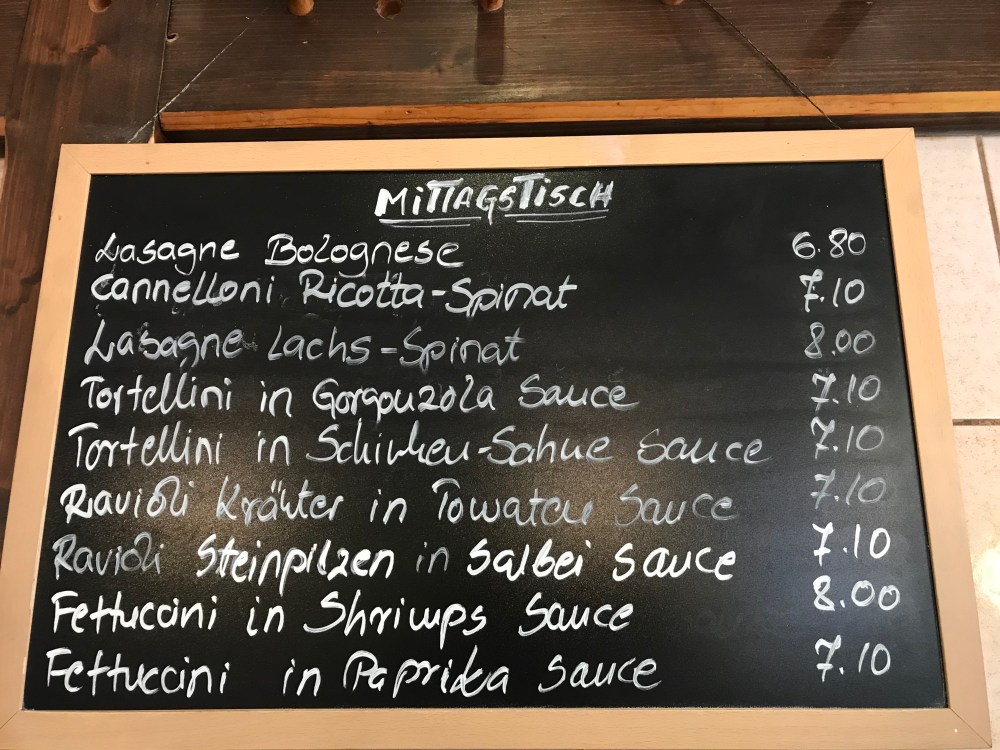 MITTAGSTISCH
Lasagne Bolognese 6.80
Cannelloni Ricotta-Spinat 7.10
Lasagne Lachs-Spinat 8.00
Tortellini in Gorgonzola Sauce 7.10
Tortellini in Schinken-Sahne Sauce 7.10
Ravioli Kräuter in Tomaten Sauce 7.10
Ravioli Steinpilzen in Salbei Sauce 7.10
Fettuccini in Shrimps Sauce 8.00
Fettuccini in Paprika Sauce 7.10